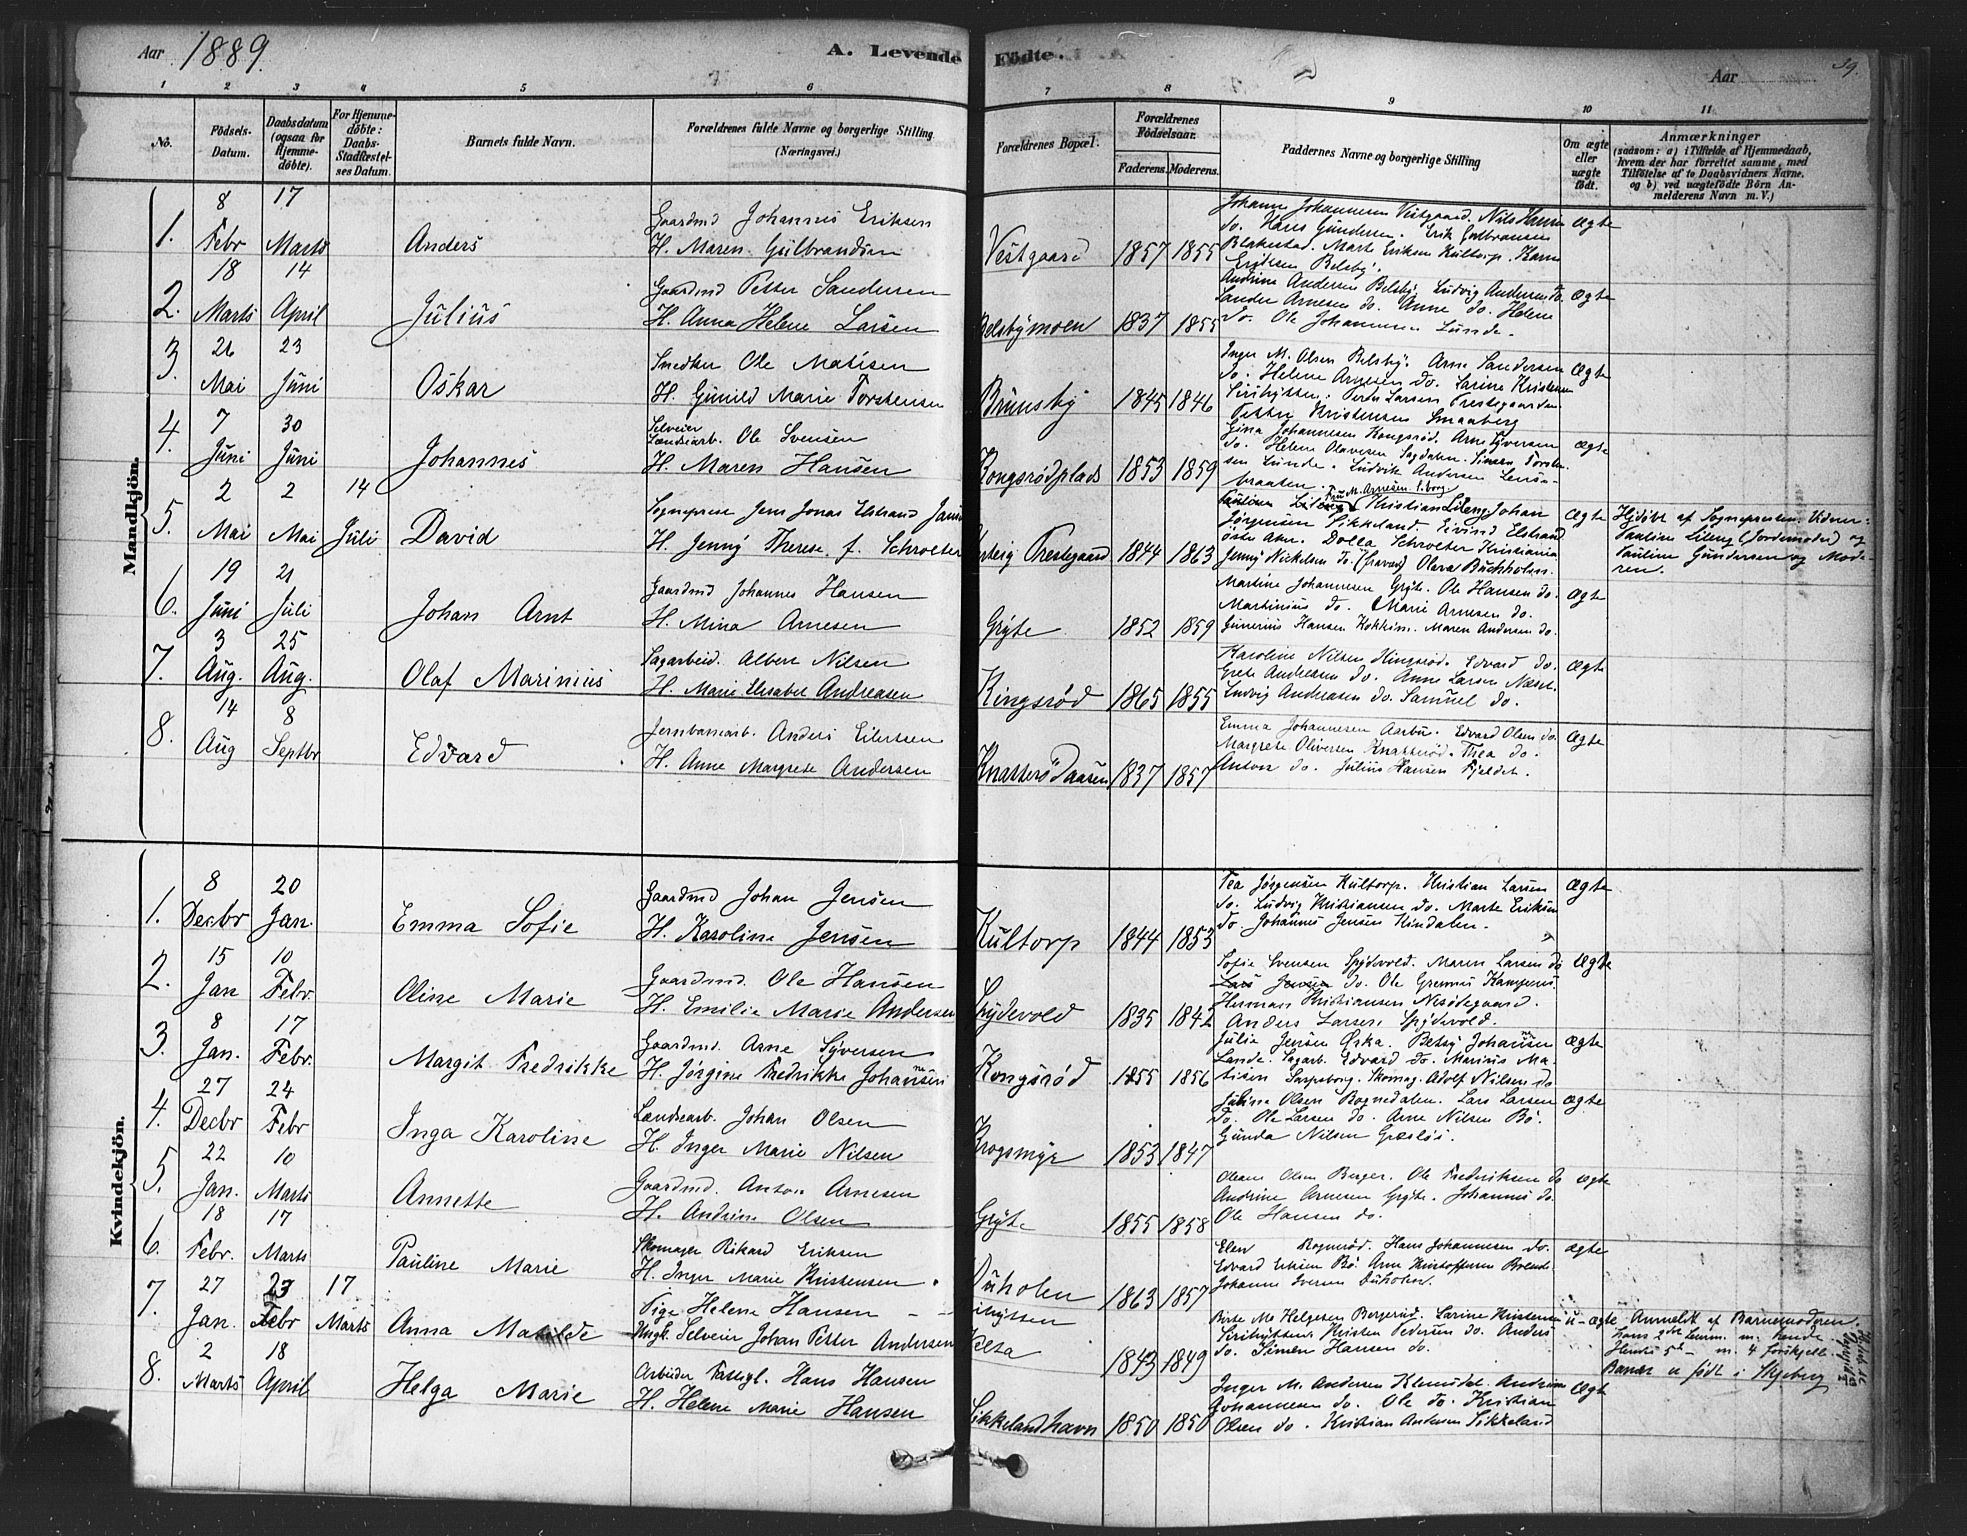 Aar 1889.
A. Levende Födte.
Aar
59.
1 2 3 4 5 6 7 8 9 10 11
No.
Födsels-Datum.
Daabsdatum (ogsaa for Hjemmedöbte).
For Hjemmedöbte: Daabs-Stadfæstelses Datum.
Barnets fulde Navn.
Forældrenes fulde Navne og borgerlige Stilling (Næringsvei.)
Forældrenes Bopæl.
Forældrenes Födselsaar.
Faderens. Moderens.
Faddernes Navne og borgerlige Stilling
Om ægte eller uægte födt.
Anmærkninger
(saasom: a) i Tilfælde af Hjemmedaab,
hvem der har forrettet samme, med
Tilföielse af to Daabsvidners Navne,
og b) ved uægtefödte Börn Anmelderens Navn m. V.)
Mandkjön.
1. 8 Febr 17 Marts Anders
Gaardmd Johannes Eriksen
H. Maren Gulbrandsen
Vestgaard 1857 1855
Johanne Johannesen Vestgaard. Nils Hansen
do. Hans Gundersen. Erik Gulbransen
Blakestad. Marte Eriksen Kultorp. Karen
Eriksen Belsby.
Ægte
2. 18 Marts 14 April Julius
Gaardmd Petter Sandersen
H. Anna Helene Larsen
Belsbymoen 1837 1855
Andrine Andersen Belsby. Ludvig Andersen do.
Sander Arnesen do. Anne do. Helene
do. Ole Johannesen Lunde.
Ægte
3. 26 Mai 23 Juni Oskar
Snedker Ole Matisen
H. Gunild Marie Torstensen
Brunsby 1845 1846
Inger M. Olsen Belsby. Arne Sandersen
do. Helene Arnesen do. Larine Kristensen
Sirihytten. Peder Larsen Prestegaarden
Petter Kristensen Smaaberg
Ægte
4. 7 Juni 30 Juni Johannes
Selveier
Landsearb. Ole Svensen
H. Maren Hansen
Kongsrødplads 1853 1859
Gina Johannesen Kongsrød. Arne Syversen
do. Helene Olavesen Sagdalen. Simen Torsten-
sen Lunde. Ludvik Andersen Lersö-
braaten.
ægte
5. 2 Mai 2 Mai 14 Juli David
Sogneprest Jens Jonas Elstrand
H. Jenny Therese f. Schroeter
Prestegaard 1844 1863
Fru M. Arnesen S.borg
Pauline Lileng Kristian Lileng Johan
Jørgensen Sikkeland. Eivind Elstrand
østre Aker. Dolla Schroeter Kristiania
Jenny Nickelsen do. (fravær) Olava Buchholm.
Ægte
Hjdöbt af Sognepresten. Vidner:
Pauline Lileng (Jordemoder) og
Pauline Gundersen og Mode-
ren.
6. 19 Juni 21 Juli Johan Arnt
Gaardmd Johannes Hansen
H. Mina Arnesen
Gryte 1852 1859
Martine Johannesen Gryte. Ole Hansen do.
Martinius do. Marie Arnesen do.
Gunerius Hansen Kokkim. Maren Andersen do.
Ægte
7. 3 Aug. 25 Aug. Olaf Marinius
Sagarbeid. Albert Nilsen
H. Marie Elisabet Andreasen
Kingsrød 1865 1855
Karoline Nilsen Kingsrød. Edvard do.
Grete Andreasen do. Anne Larsen Næset.
Ludvig Andreasen do. Samuel do.
Ægte
8. 14 Aug 8 Septbr Edvard
Jernbanearb. Anders Eilertsen
H. Anne Margrete Andersen
Knatterödaasen 1837 1857
Emma Johannesen Aarbu. Edvard Olsen do.
Margrete Oliversen Knatterød. Thea do.
Anton do. Julius Hansen Fjeldet.
Ægte
Kvindekjön.
1. 8 Decbr 20 Jan. Emma Sofie
Gaardmd Johan Jensen
H. Karoline Jensen
Kultorp 1844 1853
Tea Jørgensen Kultorp. Kristian Larsen
do. Ludvig Kristiansen do. Marte Eriksen
do. Johannes Jensen Kindalen.
Ægte
2. 15 Jan 10 Febr. Oline Marie
Gaardmd. Ole Hansen
H. Emilie Marie Andersen
Spydevold 1835 1842
Sofie Svensen Spydevold. Maren Larsen do
Lars Jensen do. Ole Grennes Kamperus
Herman Kristiansen Nesødegaard.
Anders Larsen Spydevold.
Ægte
3. 8 Jan. 17 Febr. Margit Fredrikke
Gaardmd. Arne Syversen
H. Jørgine Fredrikke Johannesen
Kongsrød 1855 1856
Julia Jensen Ørka. Betsy Johannesen
Lande. Sagarb. Edvard do. Marius Ma-
tisen Sarpsborg. Skomag. Adolf Nilsen do
ægte
4. 27 Decbr 24 Febr Inga Karoline
Landsearb. Johan Olsen
H. Inger Marie Nilsen
Krogsmyr 1853 1847
Juline Olsen Bognedalen. Lars Larsen
do. Ole Larsen do. Arne Nilsen Bø.
Gunda Nilsen Græsløs.
ægte
5. 22 Jan. 10 Marts Annette
Gaardmd. Anton Arnesen
H. Andrine Olsen
Gryte 1855 1858
Oleane Olsen Berger. Ole Fredriksen do
Andrine Arnesen Gryte. Johannes do.
Ole Hansen do.
ægte
6. 18 Febr. 17 Marts Pauline Marie
Skomager Rikard Eriksen
H. Inger Marie Kristensen
Duholen 1863 1857
Elen Rognerød. Hans Johannesen do.
Edvard Eriksen Bø. Arne Kristoffersen Brende
Johanne Iversen Duholen.
ægte
7. 27 Jan. 23 Febr 17 Marts Anna Matilde
Pige Helene Hansen
Ungk. Selveier Johan Petter Andersen
1843 1849
Berte M. Helgesen Borgerud. Larine Kristensen
Sirihytten. Kristen Pedersen do. Anders
do. Simen Hansen do.
u-ægte
Anmeldt af Barnemoderen.
Hans 2det Leierm. m. hende.
Hendes 5te m. 4 forskjell.
Barnet er födt i Skjeberg
8. 2 Marts 18 April Helga Marie
Arbeider Fattigl. Hans Hansen
H. Helene Marie Hansen
Sikkelandhavn 1850 1850
Inger M. Andersen Klemsdal. Andrine
Johannesen do. Ole do. Kristian
Olsen do. Kristian Andersen Sikkeland
Ægte